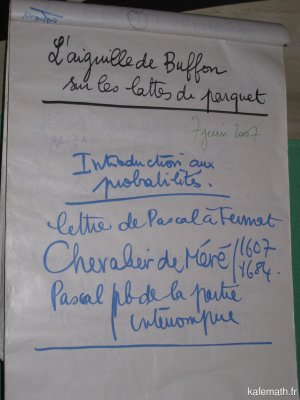 L'aiguille de Buffon
sur les lattes de parquet
7 juin 2007
Introduction aux
probabilités.
lettre de Pascal à Fermat
Chevalier de Méré / 1607
1684.
Pascal pb de la partie
interrompue
kafemath.fr